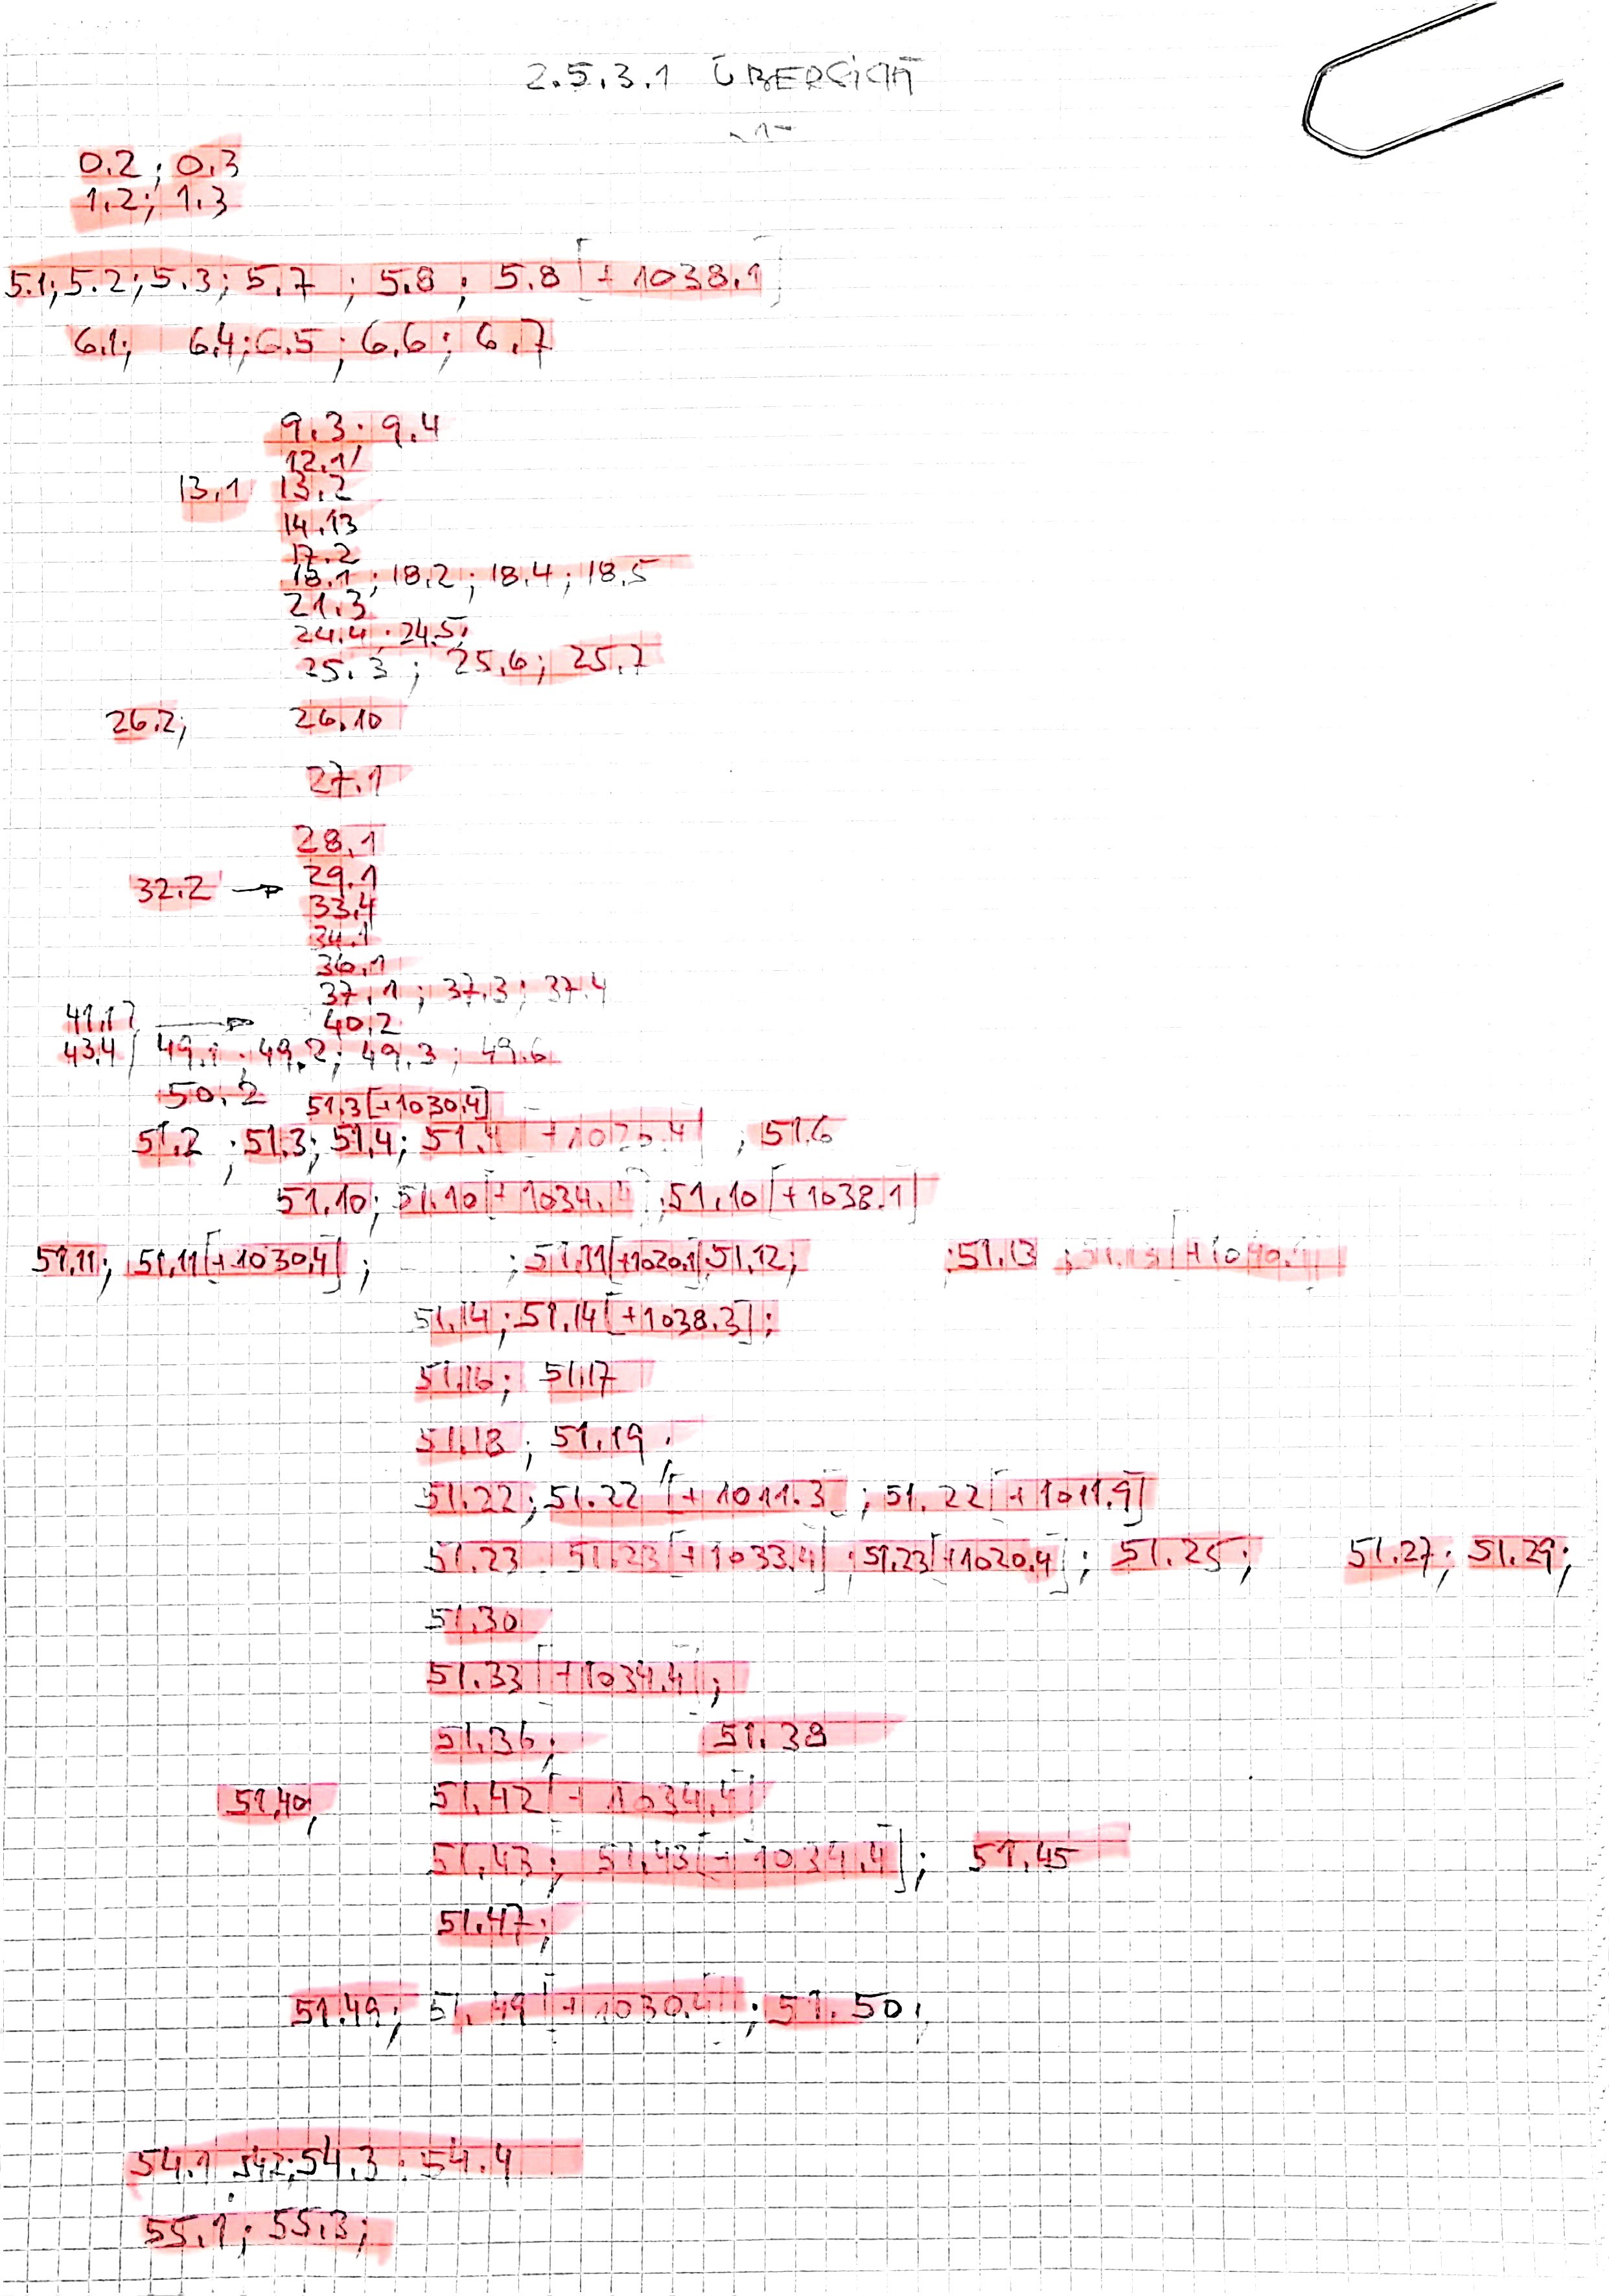 2.5.3.1 ÜBERSICHT
-1-
0.2; 0.3
1.2; 1.3
5.1; 5.2; 5.3; 5.7; 5.8; 5.8 [+1038.1]
6.1; 6.4; 6.5; 6.6; 6.7
9.3; 9.4
12.1/
13.1 13.2
14.13
17.2
18.1; 18.2; 18.4; 18.5
21.3
24.4; 24.5;
25.3; 25.6; 25.7
26.2; 26.10
27.1
28.1
29.1
32.2 →
33.4
34.1
36.1
37.1; 37.3; 37.4
41.17 → 40.2
43.4/ 49.1; 49.2; 49.3; 49.6
50.2 51.3 [+1030.4]
51.2; 51.3; 51.4; 51.4 [+1025.4]; 51.6
51.10; 51.10 [+1034.4]; 51.10 [+1038.1]
51.11; 51.11 [+1030.4]; ; 51.11 [+1020.1] 51.12; ; 51.13; 51.13 [+1040.4]
51.14; 51.14 [+1038.3];
51.16; 51.17
51.18; 51.19;
51.22; 51.22 [+1011.3]; 51.22 [+1011.9]
51.23 51.23 [+1033.4]; 51.23 [+1020.4]; 51.25; 51.27; 51.29;
51.30
51.33 [+1034.4];
51.36; 51.38
51.40; 51.42 [+1034.4]
51.43; 51.43 [+1034.4]; 51.45
51.47;
51.49; 51.49 [+1030.4]; 51.50;
54.1; 54.2; 54.3; 54.4
55.1; 55.3;